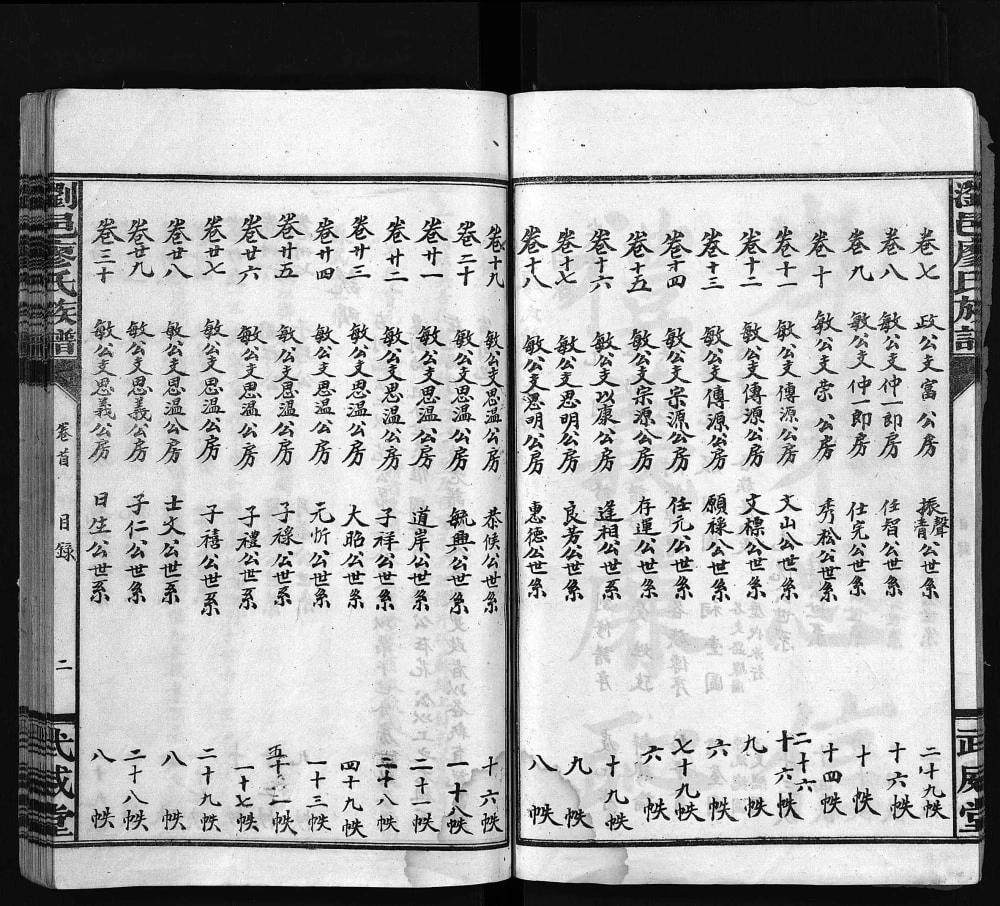 瀏邑廖氏族譜
武威堂
卷七 政公支富公房 振聲青公世系 二十九帙
卷八 敏公支仲一郎房 任智公世系 十六帙
卷九 敏公支仲一郎房 仕完公世系 十帙
卷十 敏公支崇公房 秀松公世系 十四帙
卷十一 敏公支傳源公房 文山公世系 二十六帙
卷十二 敏公支傳源公房 文標公世系 九帙
卷十三 敏公支傳源公房 願祿公世系 六帙
卷十四 敏公支宗源公房 任元公世系 七十九帙
卷十五 敏公支宗源公房 存運公世系 六帙
卷十六 敏公支以康公房 逢相公世系 十九帙
卷十七 敏公支思明公房 良芳公世系 九帙
卷十八 敏公支思明公房 惠德公世系 八帙
卷十九 敏公支思溫公房 恭候公世系 十六帙
卷二十 敏公支思溫公房 毓興公世系 一十八帙
卷廿一 敏公支思溫公房 道岸公世系 二十一帙
卷廿二 敏公支思溫公房 子祥公世系 二十八帙
卷廿三 敏公支思溫公房 大昭公世系 四十九帙
卷廿四 敏公支思溫公房 元忻公世系 一十三帙
卷廿五 敏公支思溫公房 子祿公世系 五十二帙
卷廿六 敏公支思溫公房 子禮公世系 一十七帙
卷廿七 敏公支思溫公房 子禧公世系 二十九帙
卷廿八 敏公支思溫公房 士文公世系 八帙
卷廿九 敏公支思義公房 子仁公世系 二十八帙
卷三十 敏公支思義公房 日生公世系 八帙
瀏邑廖氏族譜
卷首 目錄
二
武威堂